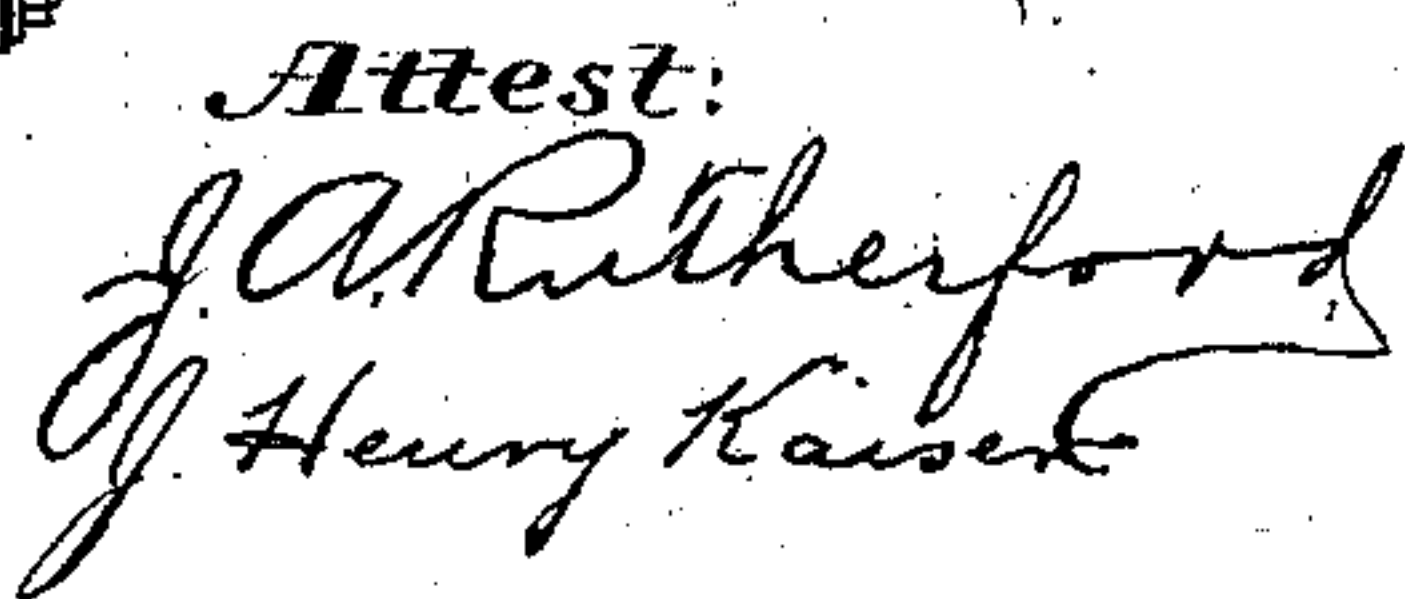 Attest:
J. A. Rutherford
J. Henry Kaiser